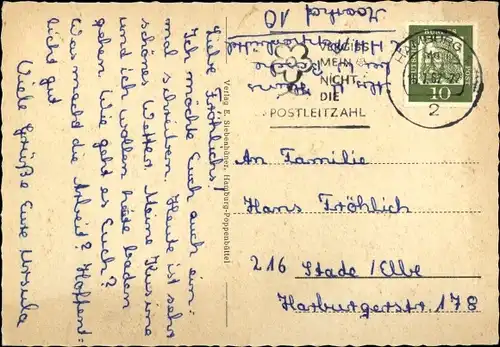 Liebe Fröhlichs!
Ich möchte Euch auch ein-
mal schreiben. Heute ist sehr
schönes Wetter. Meine Kusine
und ich wollen heute baden
gehen. Wie geht es Euch?
Was macht die Arbeit? Hoffent-
licht gut
Viele Grüße Eure Ursula
Verlag E. Siebenhüner, Hamburg-Poppenbüttel
VERGISS
MEIN
NICHT
DIE
POSTLEITZAHL
HAMBURG
2
DEUTSCHE BUNDESPOST
10
An Familie
Hans Fröhlich
216 Stade/Elbe
Harburgerstr. 178